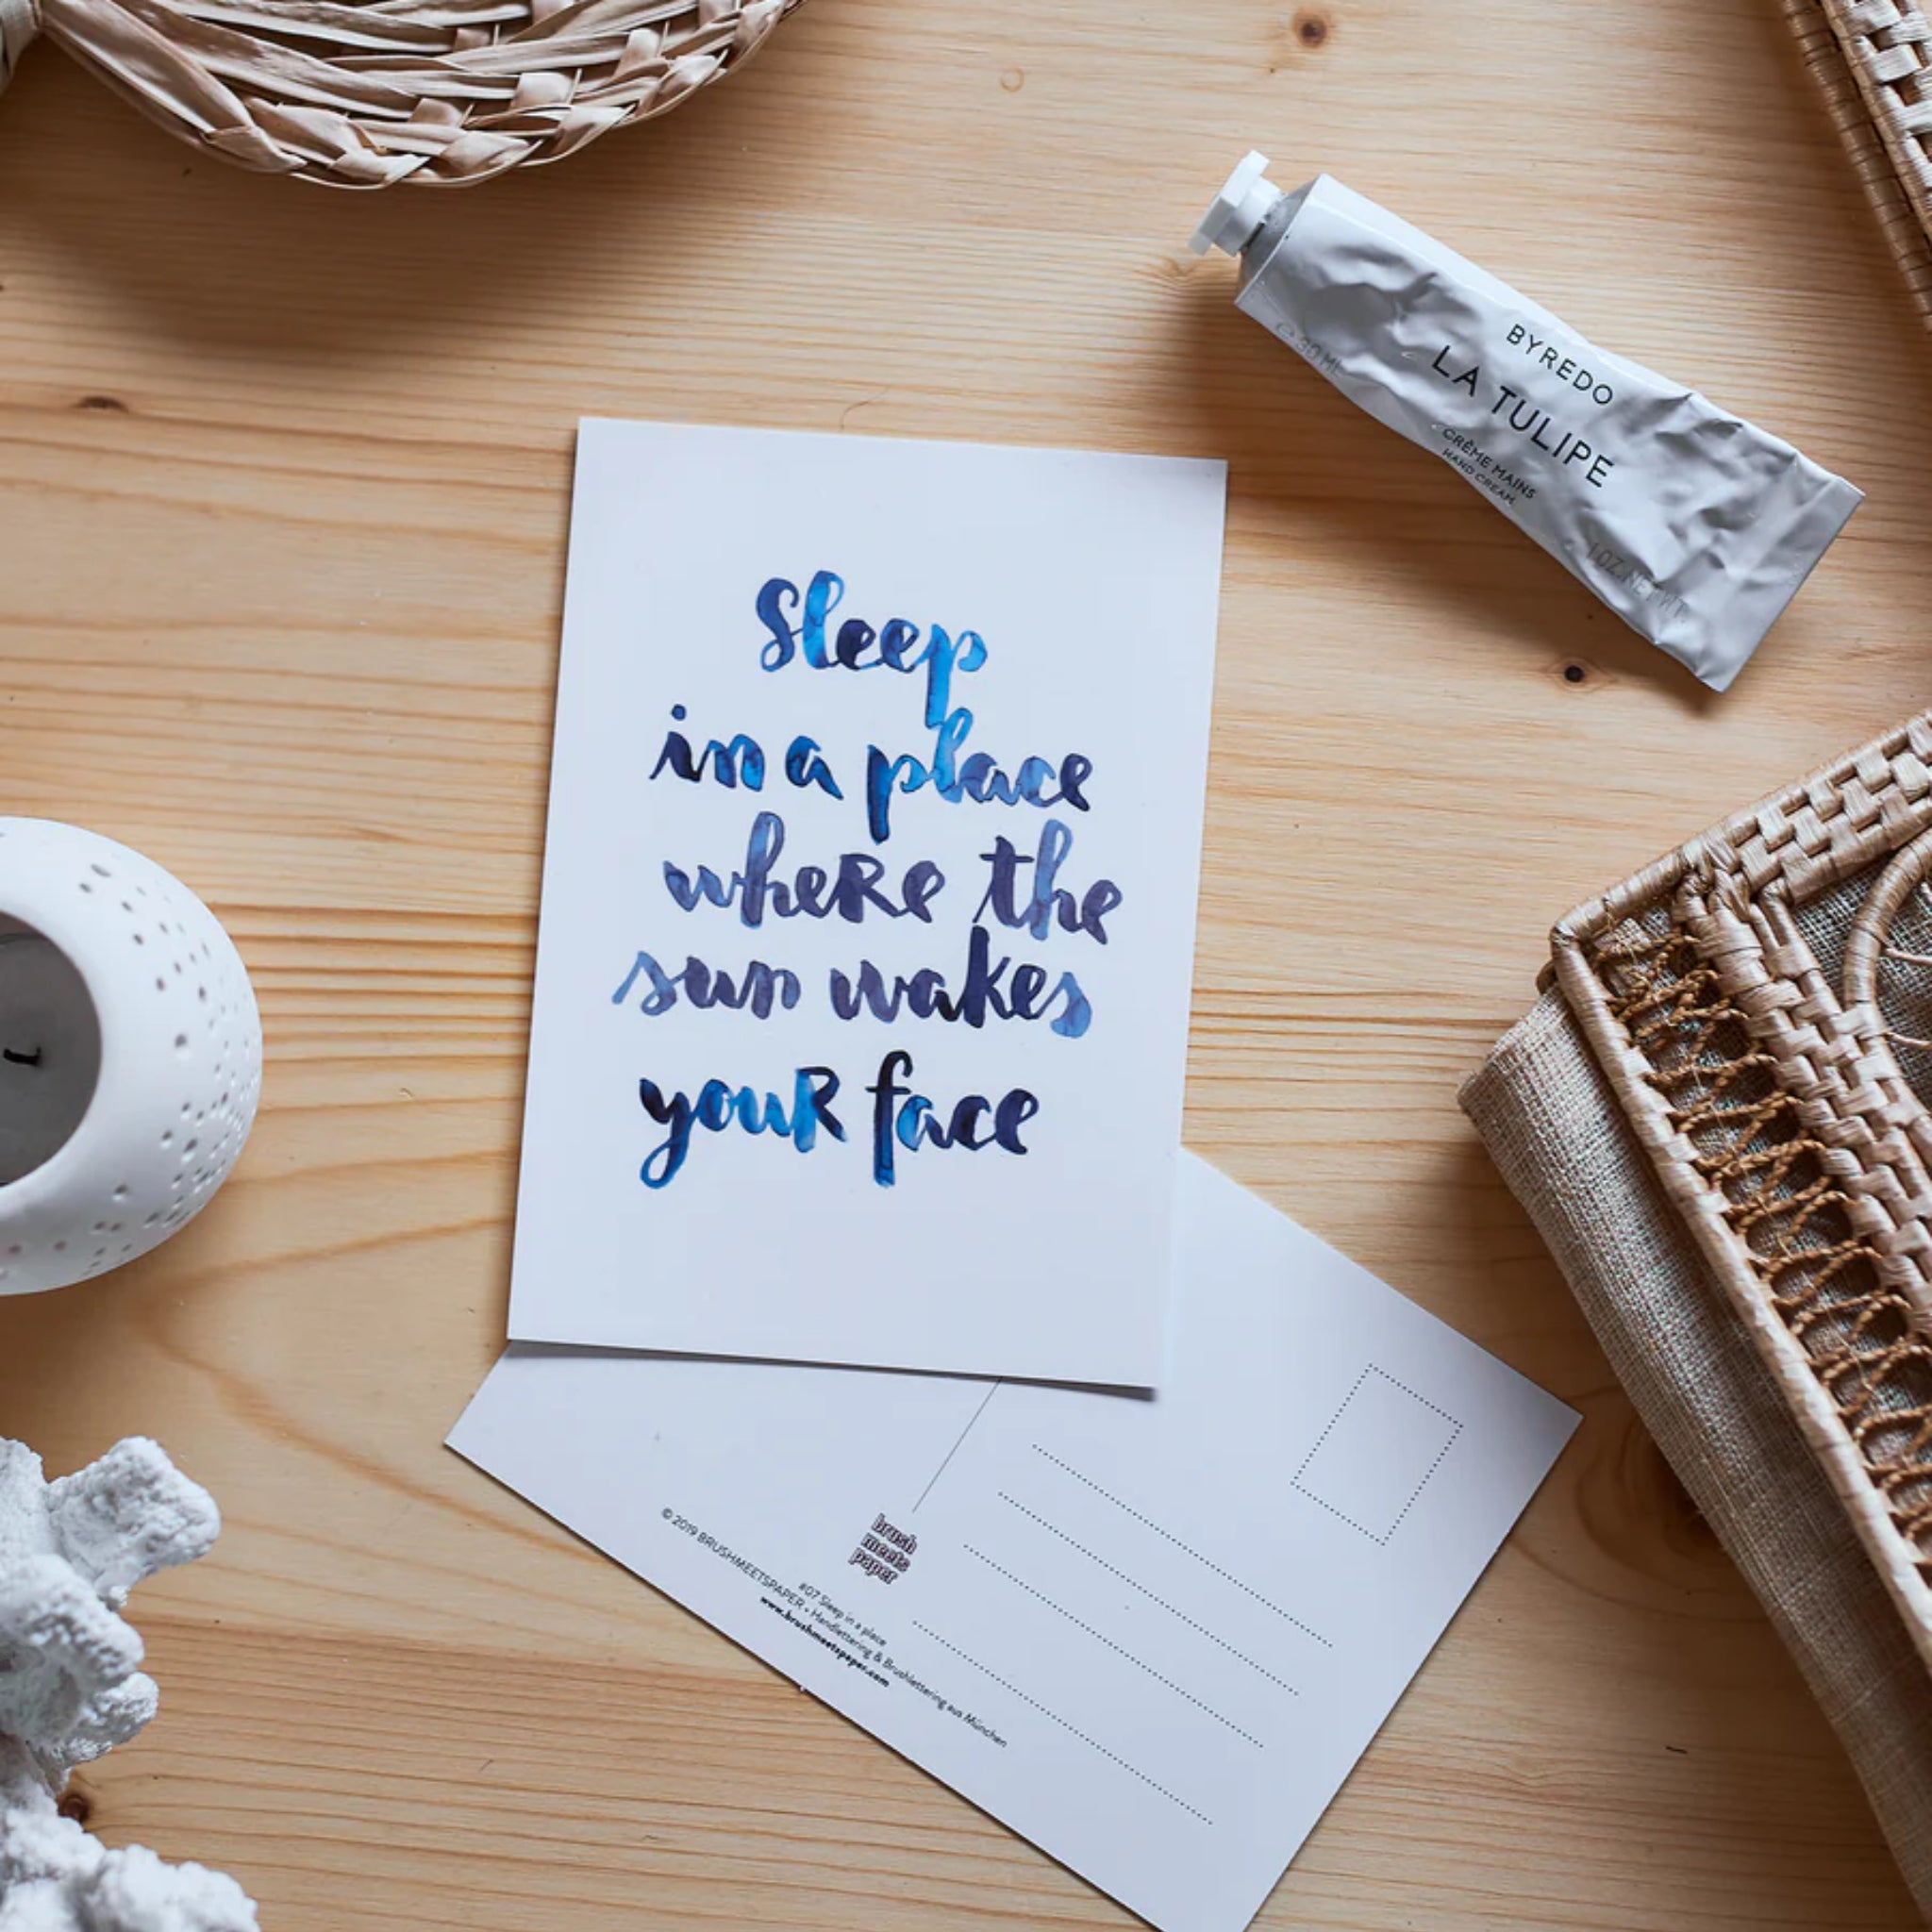 BYREDO
LA TULIPE
CRÈME MAINS
HAND CREAM
e 30 ML
1 OZ. NET WT.
Sleep
in a place
wheRe the
sun wakes
youR face
brush
meets
paper
#07 Sleep in a place
© 2019 BRUSHMEETSPAPER • Handlettering & Brushlettering aus München
www.brushmeetspaper.com